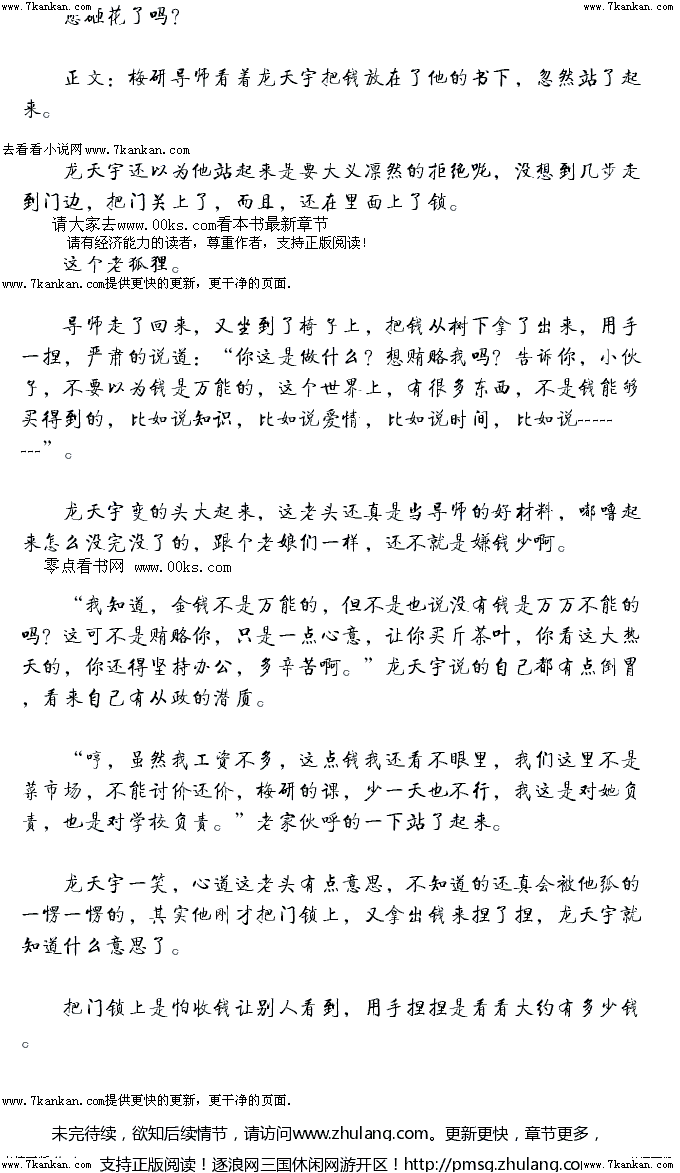 www.7kankan.com www.7kankan.com
您砸花了吗？
正文：梅研导师看着龙天宇把钱放在了他的书下，忽然站了起
来。
去看看小说网www.7kankan.com
龙天宇还以为他站起来是要大义凛然的拒绝呢，没想到几步走
到门边，把门关上了，而且，还在里面上了锁。
请大家去www.00ks.com看本书最新章节
请有经济能力的读者，尊重作者，支持正版阅读！
这个老狐狸。
www.7kankan.com提供更快的更新，更干净的页面.
导师走了回来，又坐到了椅子上，把钱从树下拿了出来，用手
一捏，严肃的说道：“你这是做什么？想贿赂我吗？告诉你，小伙
子，不要以为钱是万能的，这个世界上，有很多东西，不是钱能够
买得到的，比如说知识，比如说爱情，比如说时间，比如说-------
---”。
龙天宇变的头大起来，这老头还真是当导师的好材料，嘟噜起
来怎么没完没了的，跟个老娘们一样，还不就是嫌钱少啊。
零点看书网 www.00ks.com
“我知道，金钱不是万能的，但不是也说没有钱是万万不能的
吗？这可不是贿赂你，只是一点心意，让你买斤茶叶，你看这大热
天的，你还得坚持办公，多辛苦啊。”龙天宇说的自己都有点倒胃
，看来自己有从政的潜质。
“哼，虽然我工资不多，这点钱我还看不眼里，我们这里不是
菜市场，不能讨价还价，梅研的课，少一天也不行，我这是对她负
责，也是对学校负责。”老家伙呼的一下站了起来。
龙天宇一笑，心道这老头有点意思，不知道的还真会被他弧的
一愣一愣的，其实他刚才把门锁上，又拿出钱来捏了捏，龙天宇就
知道什么意思了。
把门锁上是怕收钱让别人看到，用手捏捏是看看大约有多少钱
。
www.7kankan.com提供更快的更新，更干净的页面.
未完待续，欲知后续情节，请访问www.zhulang.com。更新更快，章节更多，
支持正版阅读！逐浪网三国休闲网游开区！http://pmsg.zhulang.com
www.7kankan.com www.7kankan.com